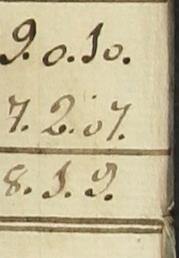 9.0.10.
7.2.07.
8.1.9.